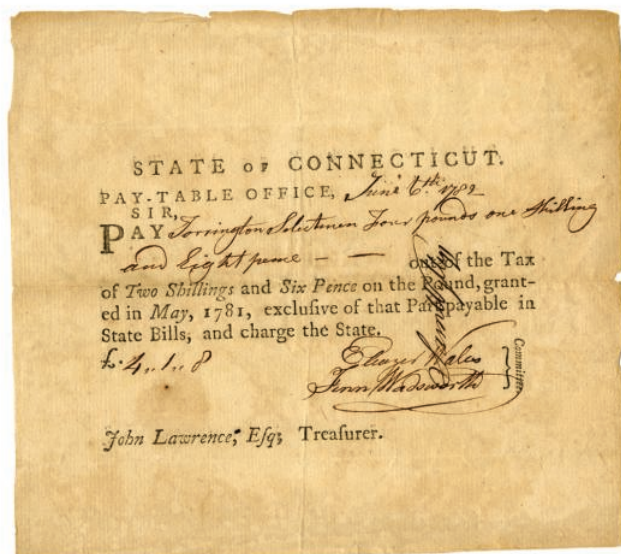 STATE OF CONNECTICUT.
PAY-TABLE OFFICE, June 6th. 1782
SIR,
PAY Torrington Selectmen Four pounds one Shilling
and Eight pence — — out of the Tax
of Two Shillings and Six Pence on the Pound, grant-
ed in May, 1781, exclusive of that Part payable in
State Bills, and charge the State.
£. 4,,1,,8
Eleazer Wales
Fenn Wadsworth
} Committee
John Lawrence, Esq; Treasurer.